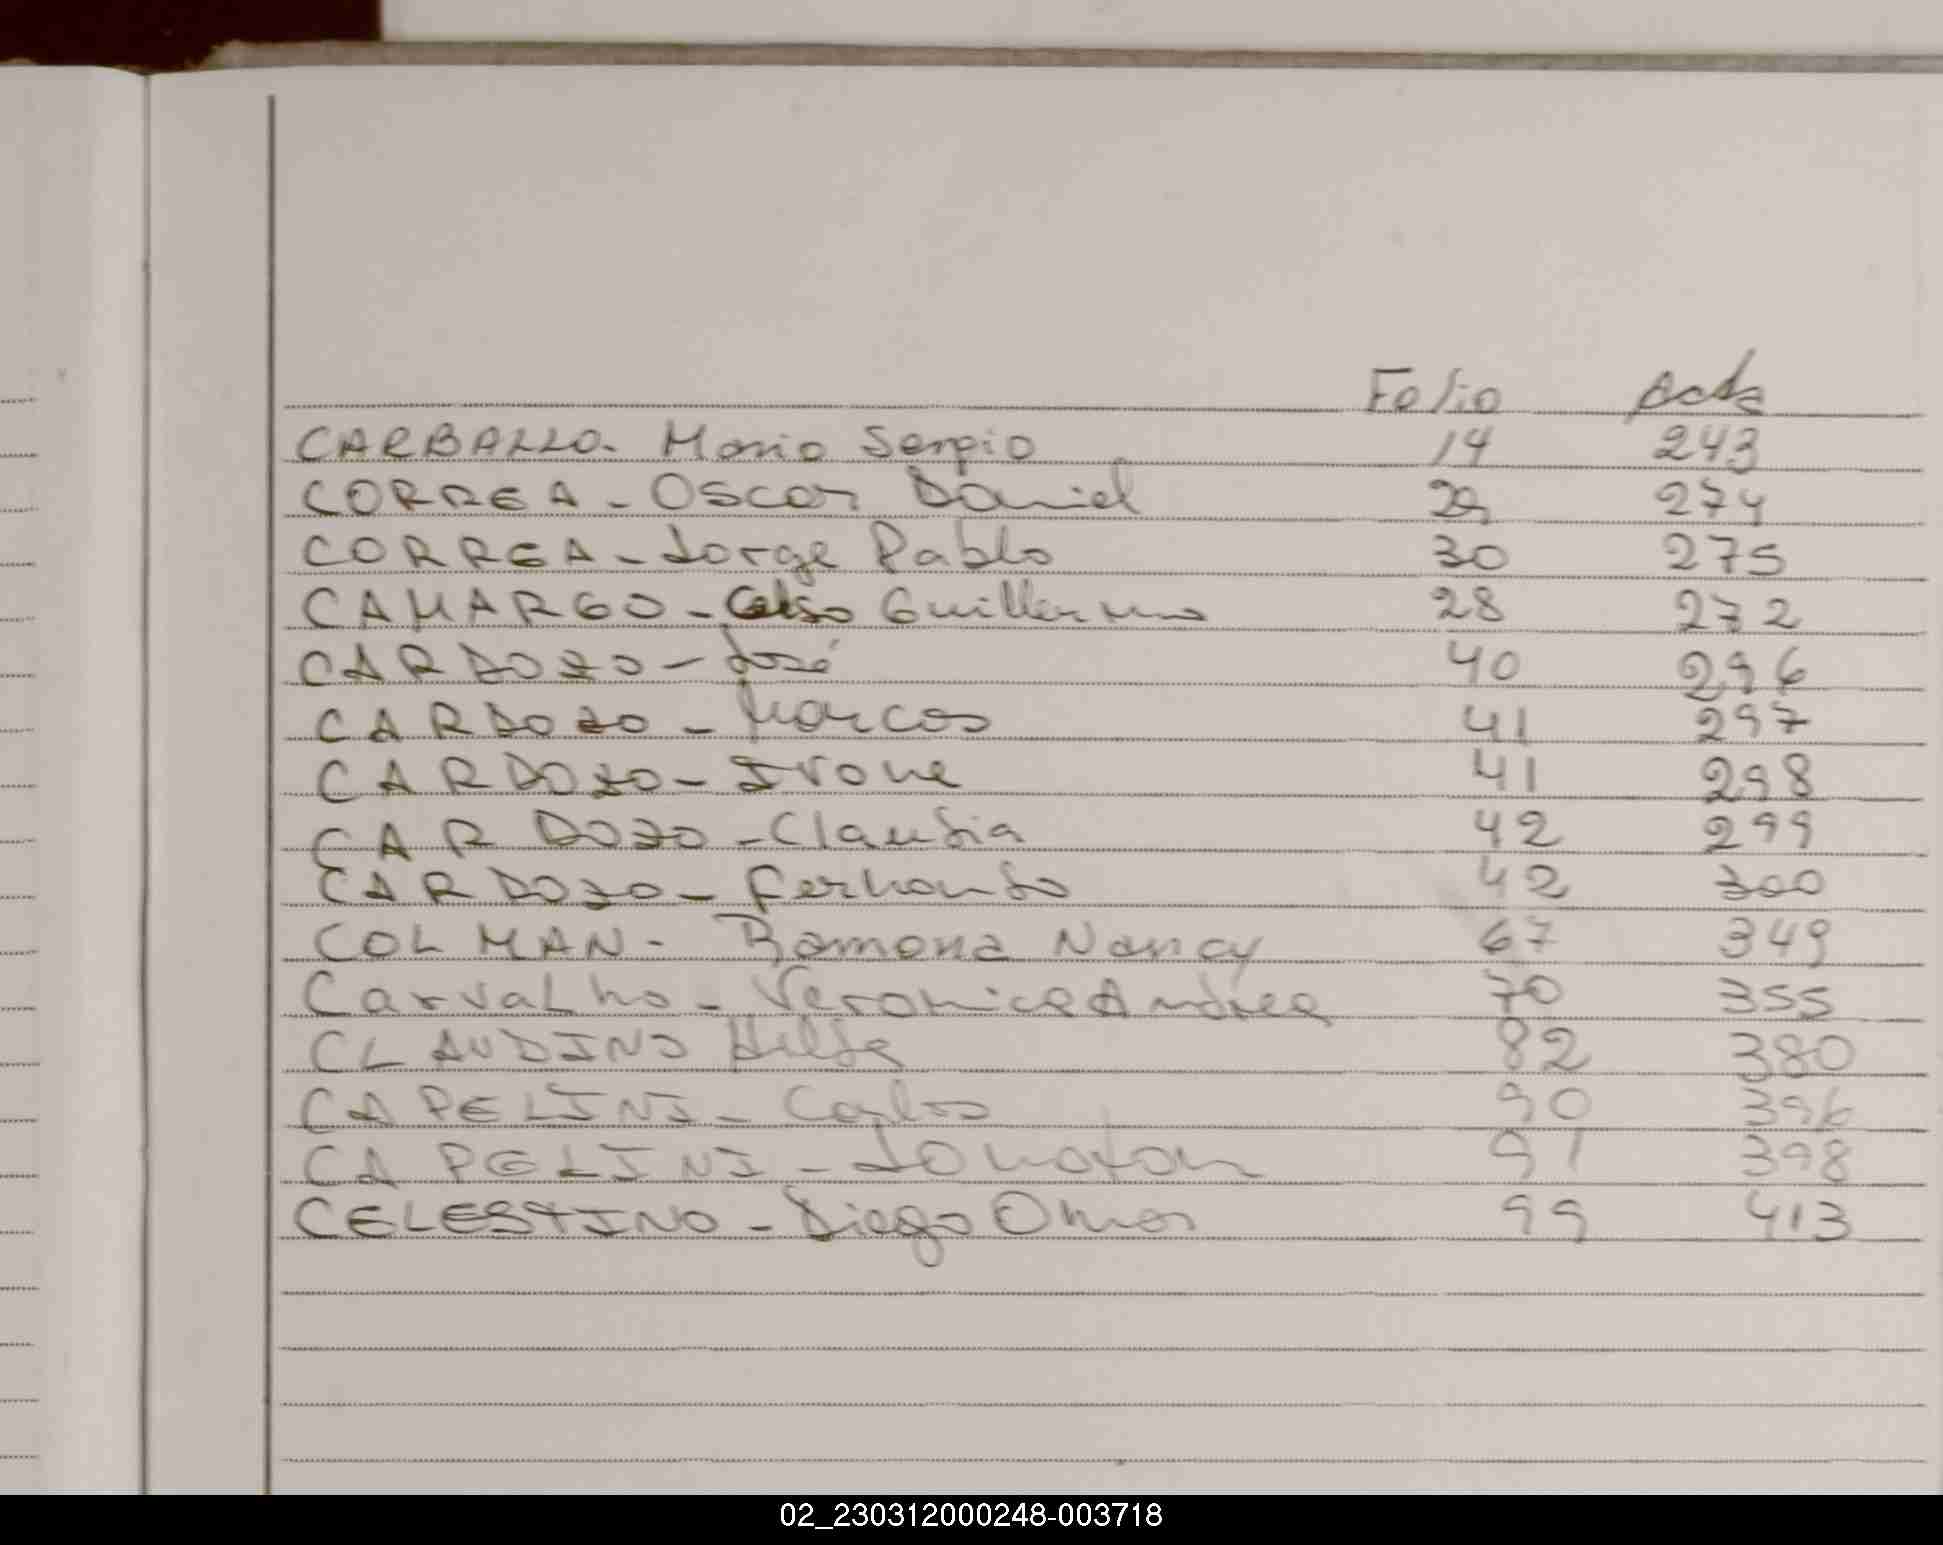 Folio Acta
CARBALLO. Mario Sergio 14 243
CORREA - Oscar Daniel 29 274
CORREA - Jorge Pablo 30 275
CAMARGO - Celso Guillermo 28 272
CARDOZO - José 40 296
CARDOZO - Marcos 41 297
CARDOZO - Ivone 41 298
CARDOZO - Claudia 42 299
CARDOZO - Fernando 42 300
COLMAN - Ramona Nancy 67 349
Carvalho - Veronica Andrea 70 355
CLAUDINO Hilda 82 380
CAPELINI - Carlos 90 396
CAPELINI - Jonatan 91 398
CELESTINO - Diego Omar 99 413
02_230312000248-003718